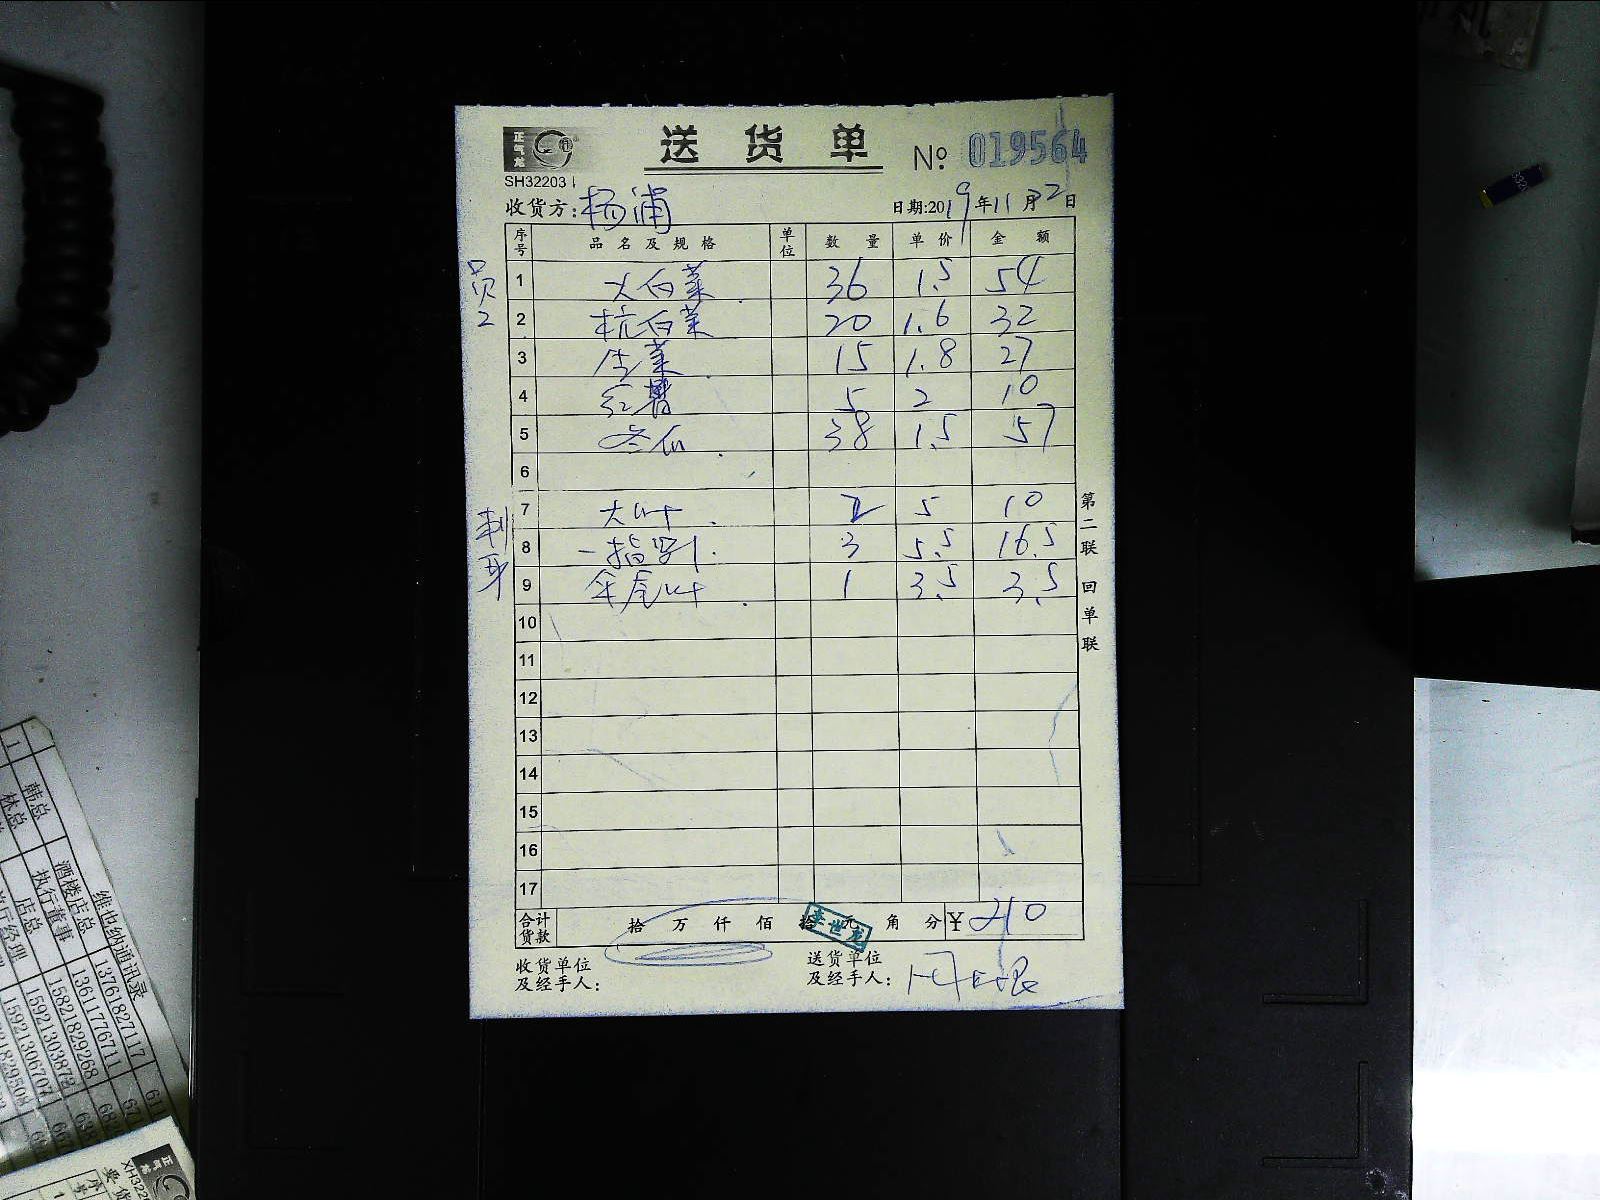 正气龙
送货单
№: 019564
SH32203
收货方: 杨浦
日期:2019年11月22日
序号 品名及规格 单位 数量 单价 金额
员2
1 大白菜 36 1.5 54
2 杭白菜 20 1.6 32
3 生菜 15 1.8 27
4 红薯 5 2 10
5 冬瓜 38 1.5 57
6
刺身
7 大叶 2 5 10
8 一指 3 5.5 16.5
9 叶 1 3.5 3.5
10
11
12
13
14
15
16
17
合计货款 拾万仟佰拾元角分 ¥210
李世龙
收货单位及经手人:
送货单位及经手人:
第二联 回单联
维也纳通讯录
酒楼店总 13761827117
韩总 执行董事 13611776711
林总 店总 15821829268
15921303878
15921306707
正气龙
XH322